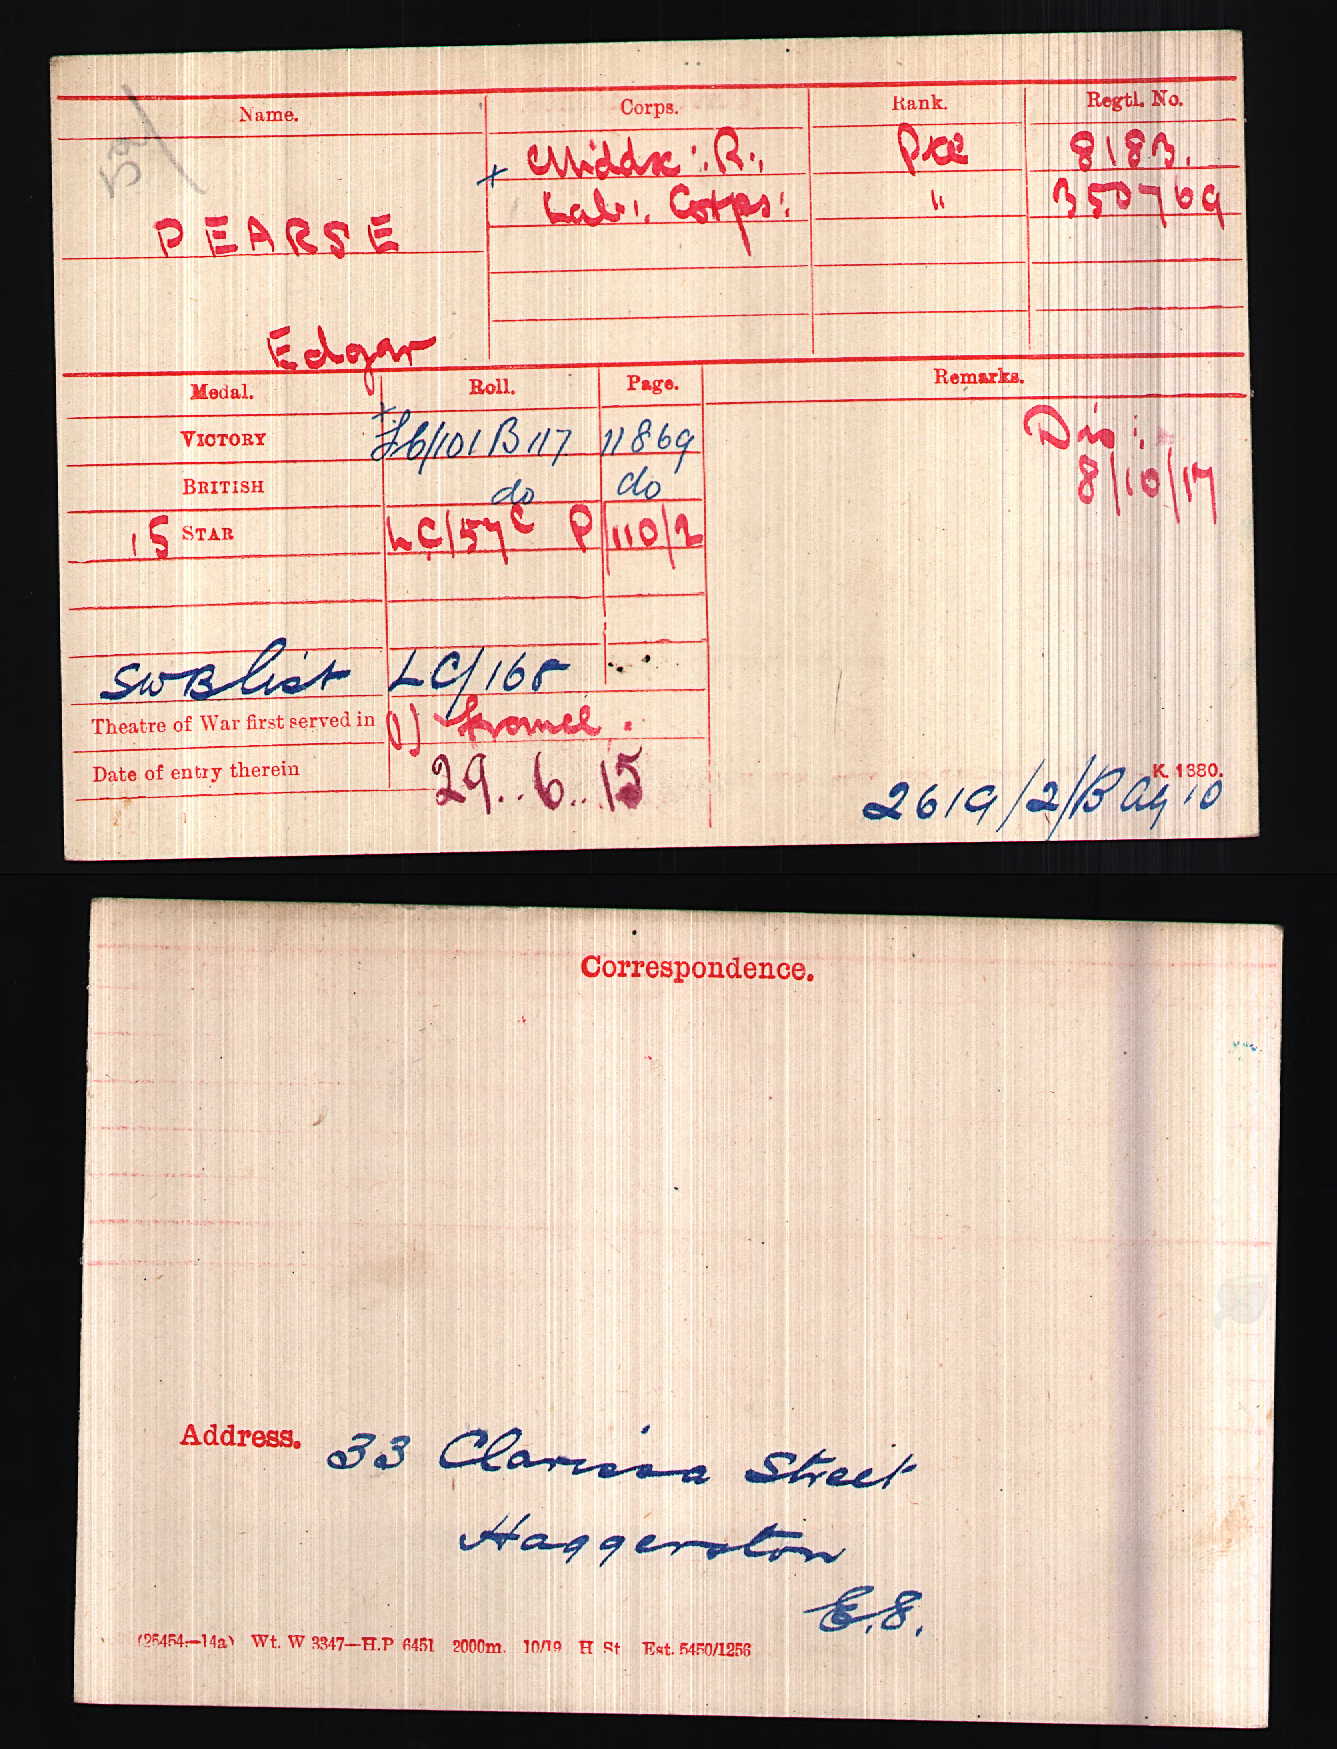 Name. Corps. Rank. Regtl. No.
+ Middx: R: Pte 8183.
Lab: Corps: " 350769
PEARSE
Edgar
Medal. Roll. Page. Remarks.
VICTORY J6/101 B 117 11869 Dis:
BRITISH do do 8/10/17
15 STAR LC/57C P 110/2
SWB List LC/168
Theatre of War first served in (1) France.
Date of entry therein 29.6.15
K. 1380.
2619/2/B
Correspondence.
Address. 33 Clarissa Street
Haggerston
E.8.
(25454.—14a) Wt. W 3347—H.P 6451 2000m. 10/19 H St Est. 5450/1256